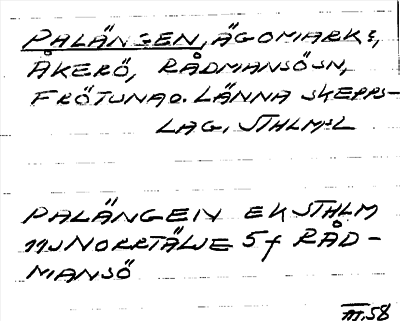 PALÄNGEN, ÄGOMARK t,
ÅKERÖ, RÅDMANSÖ SN,
FRÖTUNA O. LÄNNA SKEPPS-
LAG, STHLMSL
PALÄNGEN EK STHLM
11J NORRTÄLJE 5 f RÅD-
MANSÖ
III.58